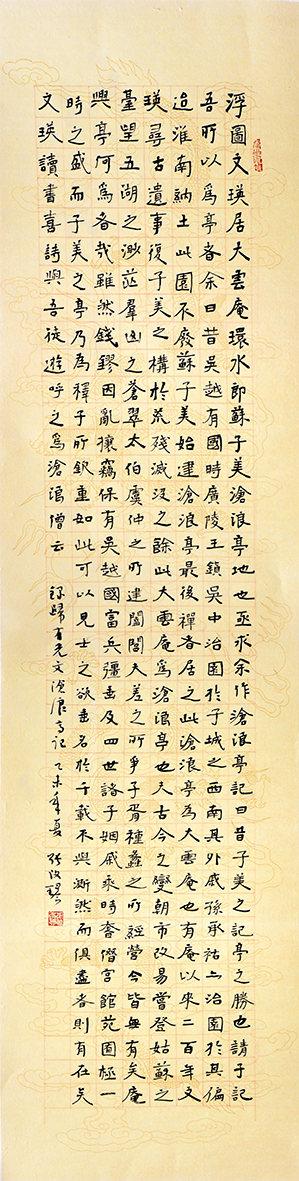 浮圖文瑛居大雲庵環水即蘇子美滄浪亭地也亟求余作滄浪亭記曰昔子美之記亭之勝也請子記
吾所以為亭者余曰昔吳越有國時廣陵王鎮吳中治園於子城之西南其外戚孫承祐亦治園於其偏
迨淮南納土此園不廢蘇子美始建滄浪亭最後禪者居之此滄浪亭為大雲庵也有庵以來二百年文
瑛尋古遺事復子美之構於荒殘滅沒之餘此大雲庵為滄浪亭也夫古今之變朝市改易嘗登姑蘇之
臺望五湖之渺茫羣山之蒼翠太伯虞仲之所建闔閭夫差之所爭子胥種蠡之所經營今皆無有矣庵
興亭何為者哉雖然錢鏐因亂攘竊保有吳越國富兵彊垂及四世諸子姻戚乘時奢僭宮館苑囿極一
時之盛而子美之亭乃為釋子所欽重如此可以見士之欲垂名於千載不與澌然而俱盡者則有在矣
文瑛讀書喜詩與吾徒遊呼之為滄浪僧云 錄歸有光文滄浪亭記 乙未年夏 張改琴